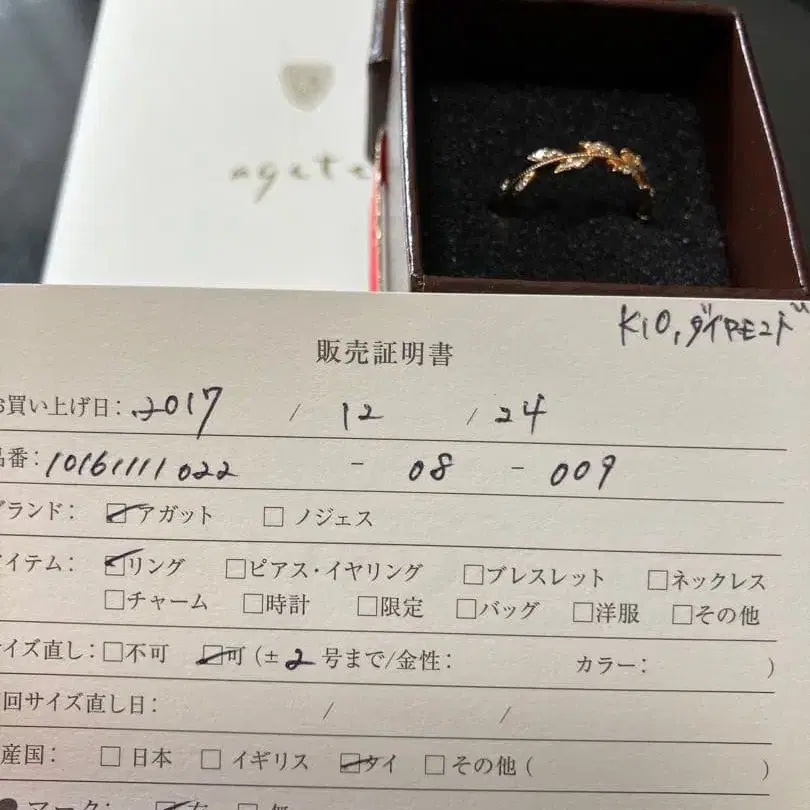 agete
K10, ダイヤモンド
販売証明書
お買い上げ日: 2017 / 12 / 24
品番: 10161111022 - 08 - 009
ブランド: ☑アガット □ ノジェス
アイテム: ☑リング □ピアス・イヤリング □ブレスレット □ネックレス
□チャーム □時計 □限定 □バッグ □洋服 □その他
サイズ直し: □不可 ☑可 (± 2 号まで/金性: カラー: )
回サイズ直し日: / /
産国: □ 日本 □ イギリス ☑タイ □ その他 ( )
マーク: ☑有 □ 無